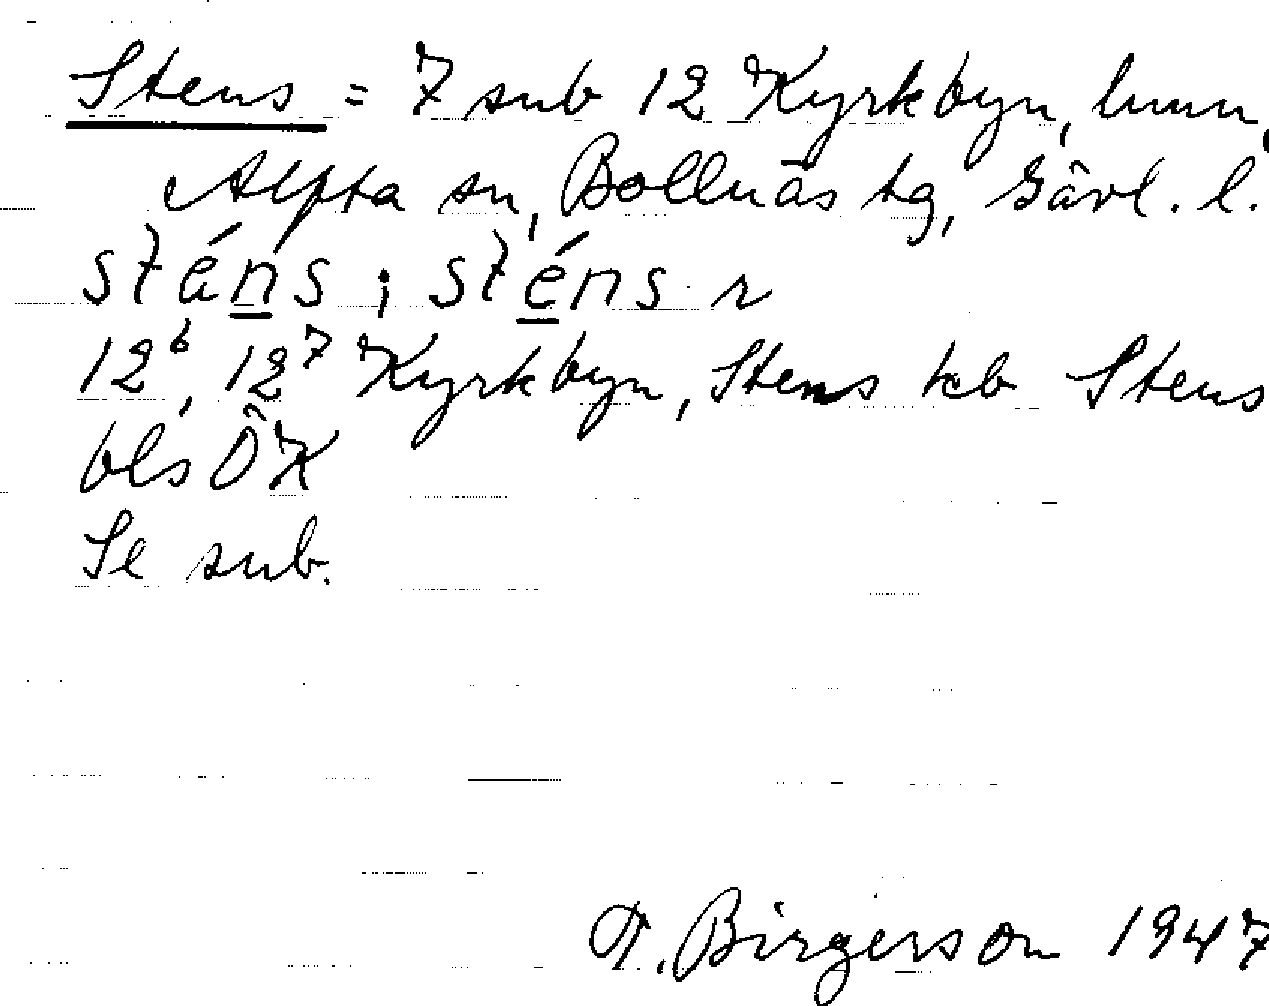 Stens = 7 sub 12 Kyrkbyn, hmn,
Alfta sn, Bollnäs tg, Gävl. l.
sténs ; sténs r
12⁶, 12⁷ Kyrkbyn, Stens kb Stens
bls ÖK
Se sub.
T. Birgerson 1947